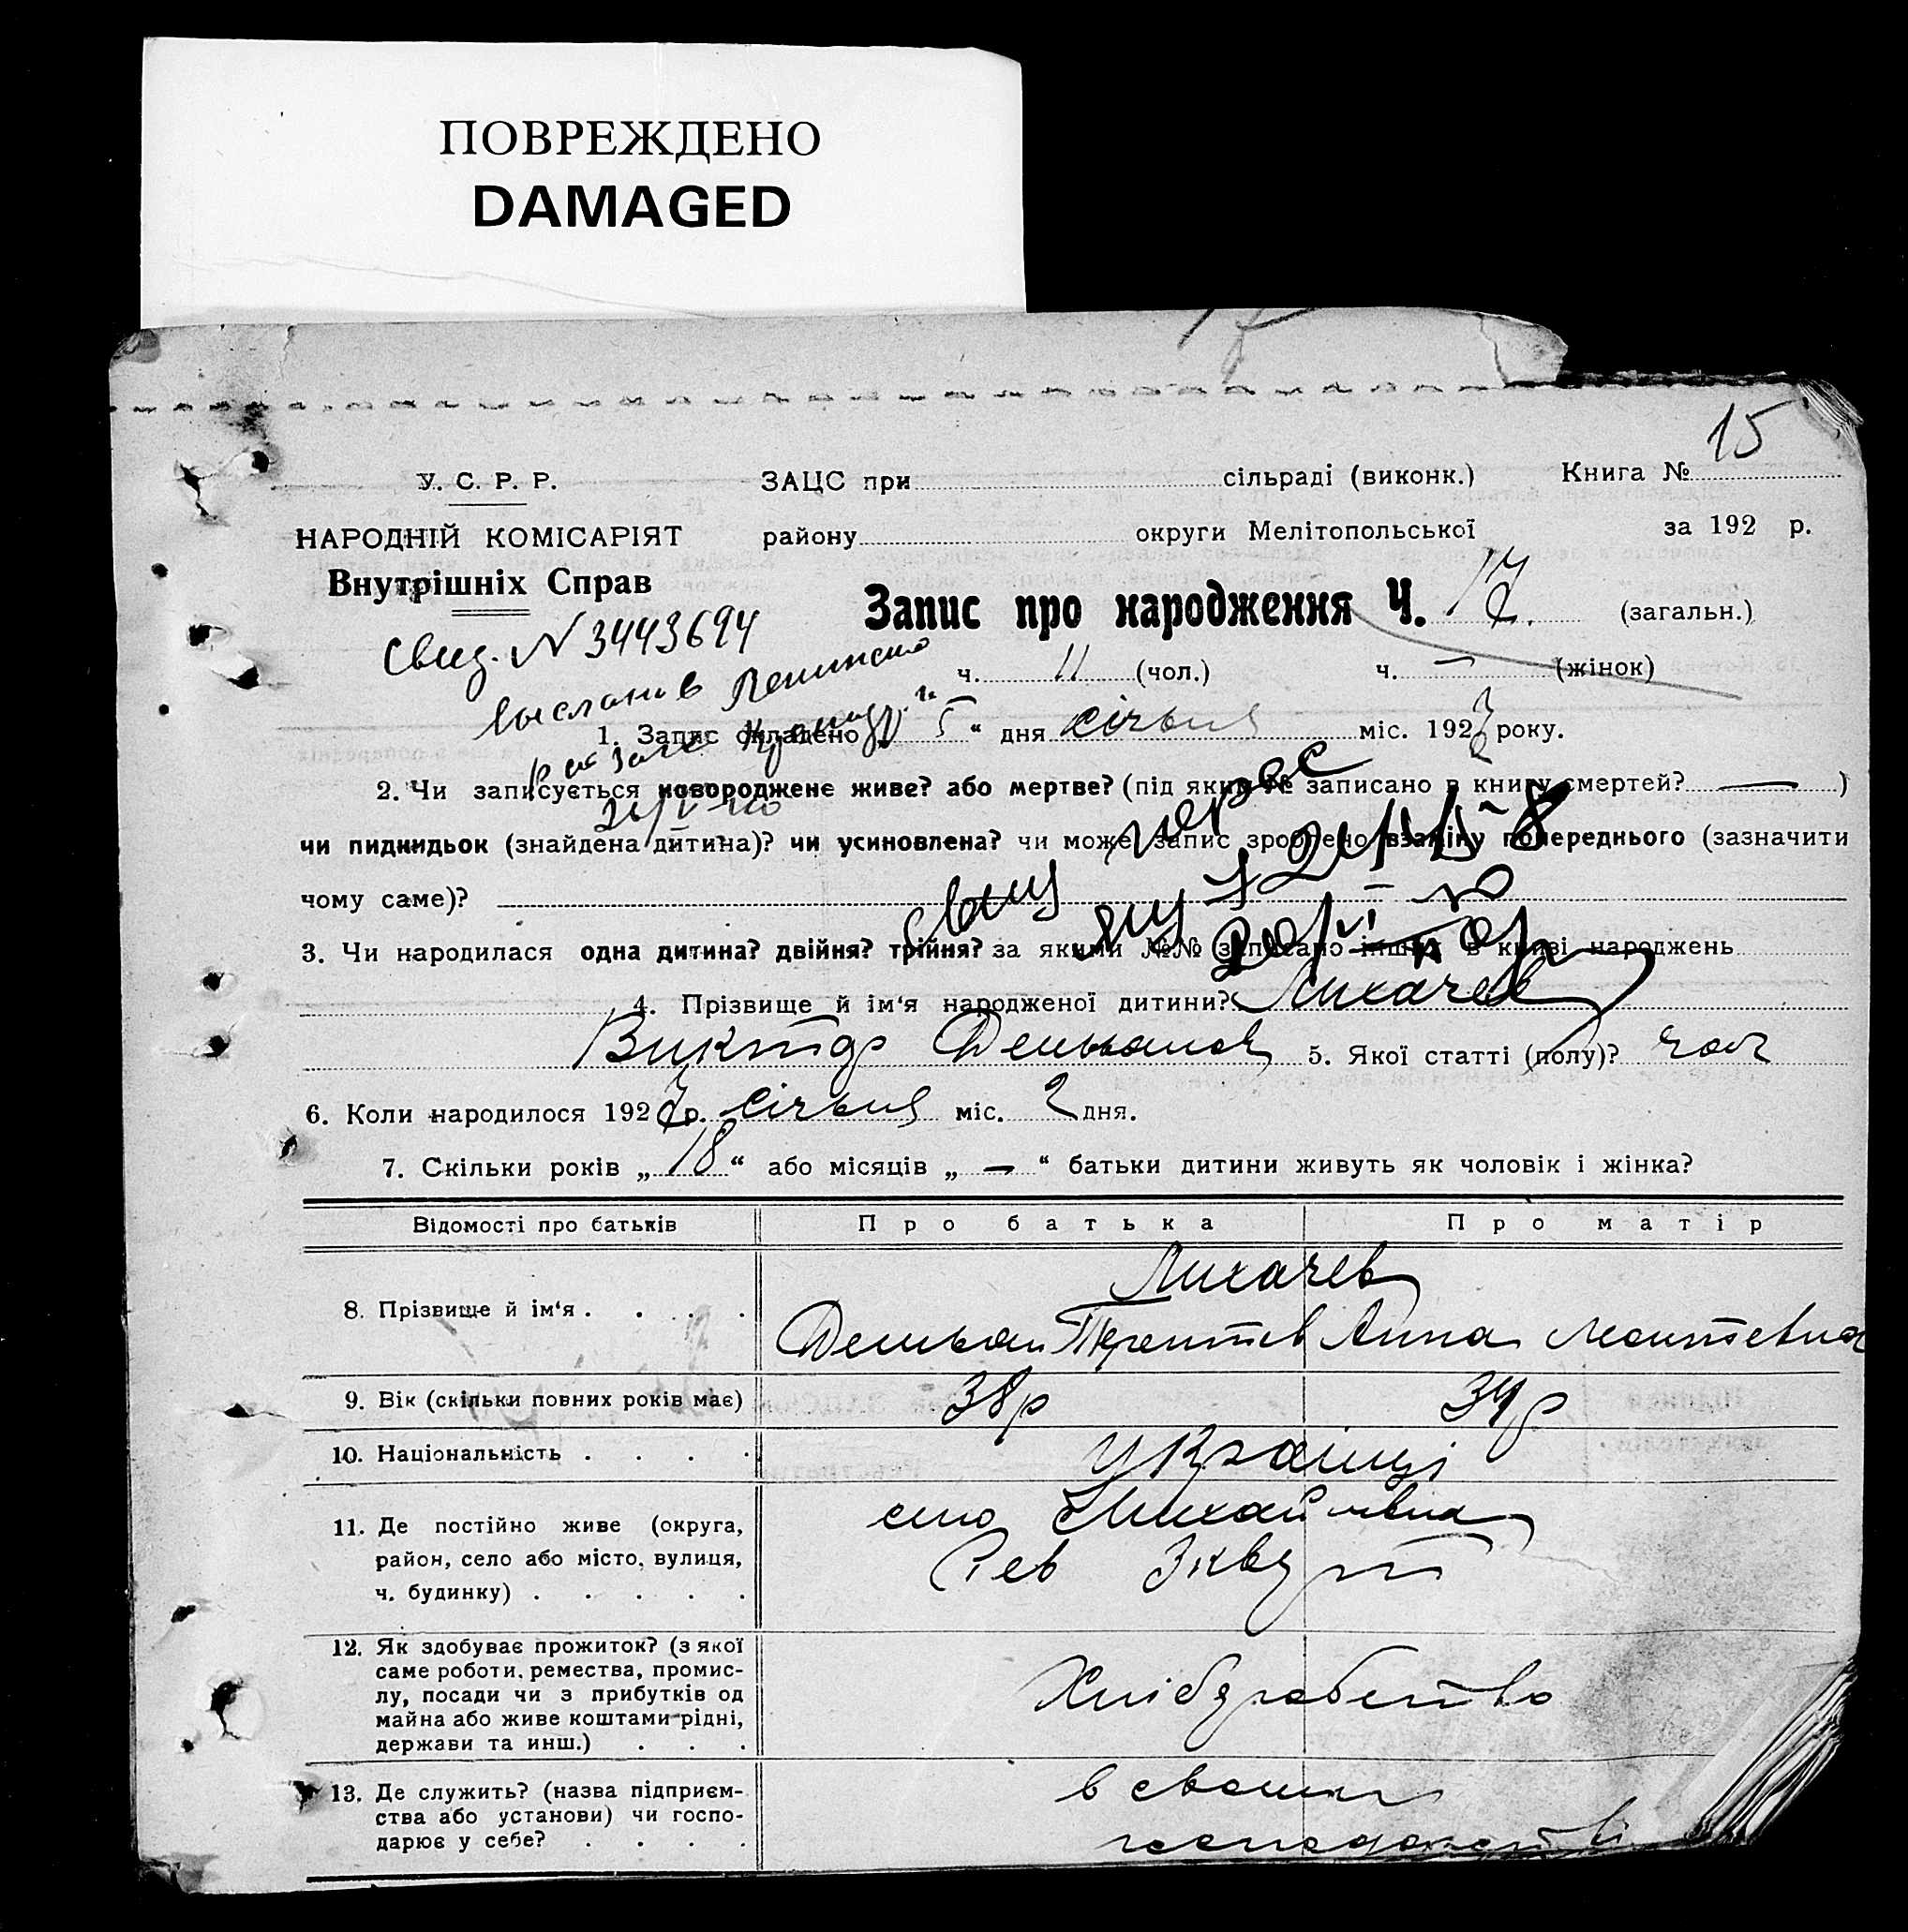 ПОВРЕЖДЕНО
DAMAGED
15
У. С. Р. Р.
ЗАЦС при сільраді (виконк.) Книга №
НАРОДНІЙ КОМІСАРІЯТ
району округи Мелітопольської за 192 р.
Внутрішніх Справ
Запис про народження Ч. 17. (загальн.)
Свид. N 3443694
ч. 11 (чол.) ч. — (жінок)
1. Запис складено „ 5 “ дня січня міс. 1927 року.
2. Чи записується новороджене живе? або мертве? (під яким № записано в книгу смертей? — )
чи пидкидьок (знайдена дитина)? чи усиновлена? чи може запис зроблено взаміну попереднього (зазначити
чому саме)?
3. Чи народилася одна дитина? двійня? трійня? за якими №№ записано інших в книзі народжень
4. Прізвище й ім‘я народженої дитини? Лихачев
Виктор Демьянов 5. Якої статті (полу)? чол
6. Коли народилося 1927 р. січня міс. 2 дня.
7. Скільки років „ 18 “ або місяців „ — “ батьки дитини живуть як чоловік і жінка?
Відомості про батьків Про батька Про матір
Лихачев
8. Прізвище й ім‘я . . . . Демьян Терентев Анна Леонтевна
9. Вік (скільки повних років має) 38р 34р
10. Національність . . . . Українці
11. Де постійно живе (округа, село Михайлівка
район, село або місто, вулиця,
ч. будинку) . . . . .
12. Як здобуває прожиток? (з якої
саме роботи, ремества, промис-
лу, посади чи з прибутків од Хліборобство
майна або живе коштами рідні,
держави та инш.) . . .
13. Де служить? (назва підприєм- в своим
ства або установи) чи госпо-
дарює у себе? . . . . господарстві